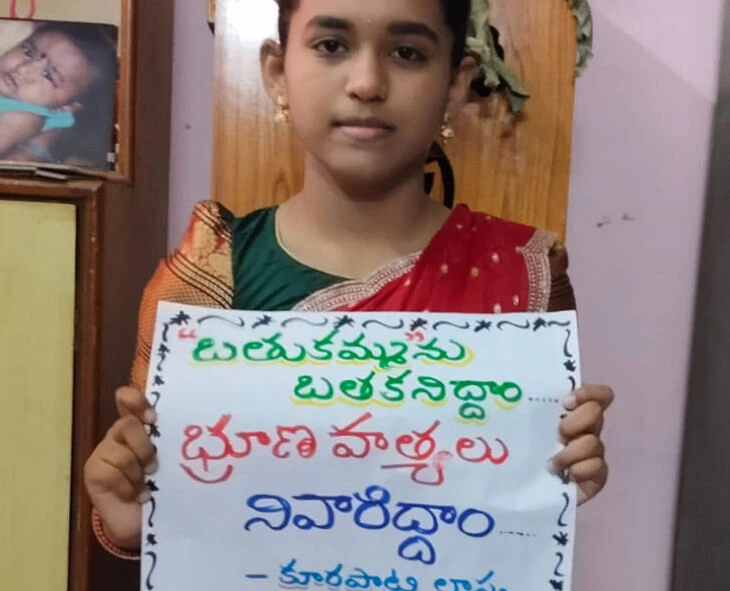 “బతుకమ్మ”ను
బతకనిద్దాం.....
భ్రూణ హత్యలు
నివారిద్దాం.....
- కూరపాటి